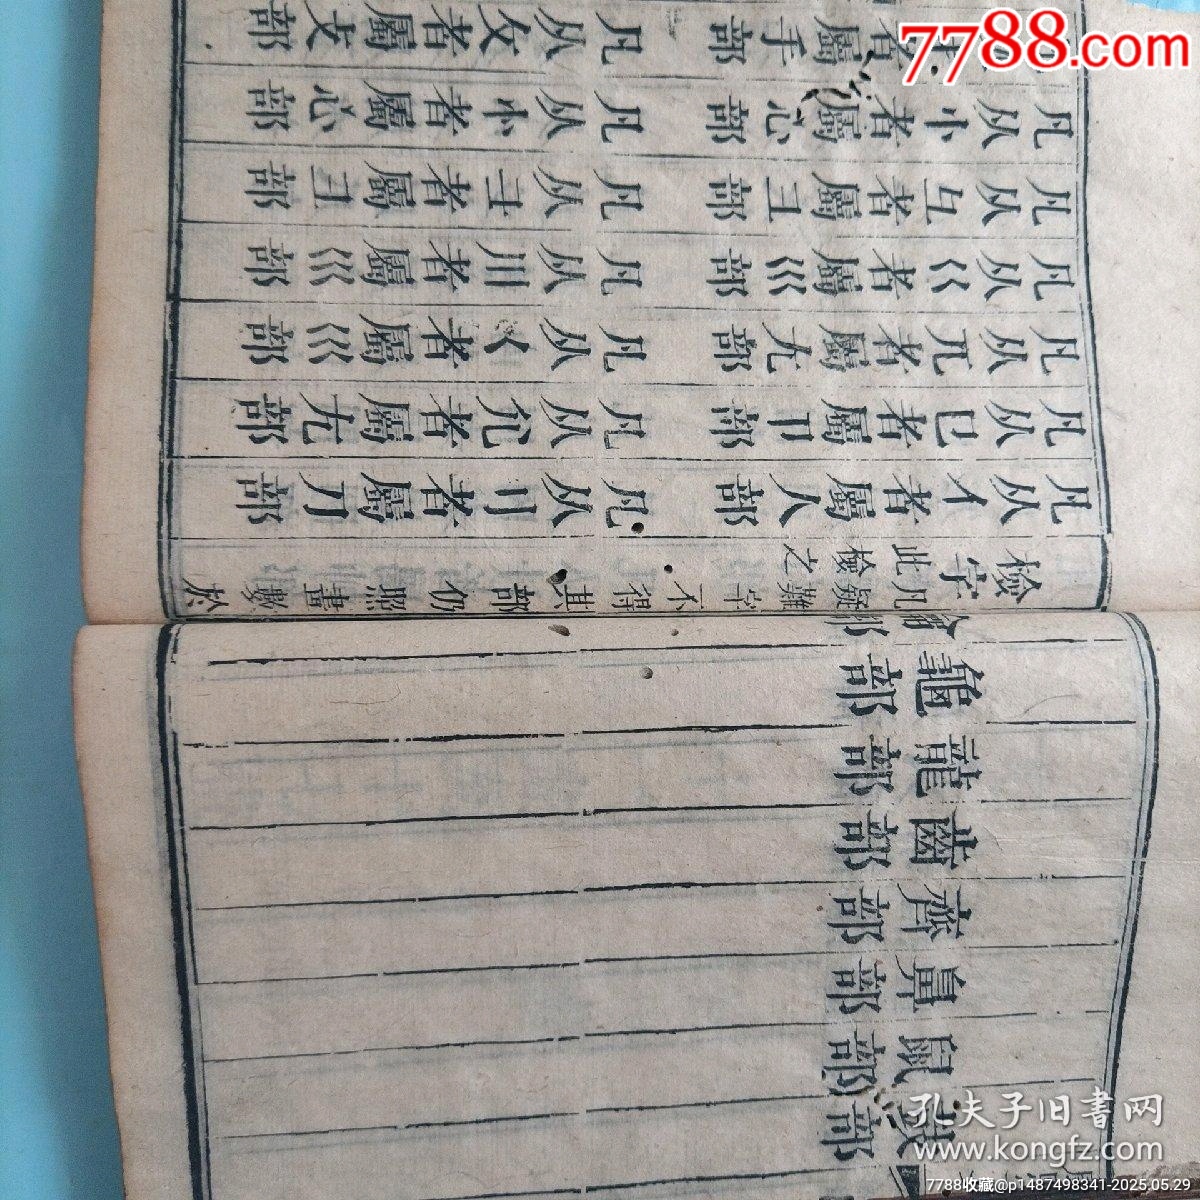 鼓部
鼠部
鼻部
齊部
齒部
龍部
龜部
龠部
檢字 凡疑難字不得其部仍照畫數於
此檢之
凡从亻者屬人部 凡从刂者屬刀部
凡从㔾者屬卩部 凡从尣者屬尢部
凡从兀者屬尢部 凡从巜者屬巛部
凡从巜者屬巛部 凡从川者屬巛部
凡从彑者屬彐部 凡从者屬彐部
凡从忄者屬心部 凡从㣺者屬心部
者屬手部 凡从攵者屬攴部
7788.com
孔夫子旧书网
www.kongfz.com
7788收藏@p1487498341-2025.05.29